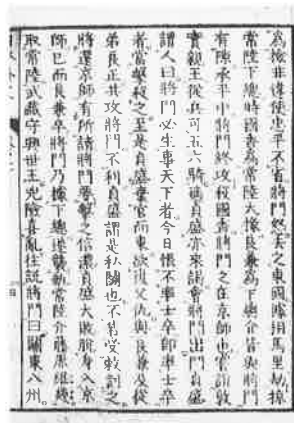 為檢非違使忠平不省將門怒去之東國據相馬里劫掠
常陸下總時國香為常陸大掾良兼為下總介皆與將門
有隙承平中將門終攻殺國香將門之在京師也嘗詣敦
實親王從兵可五六騎貞盛亦來謁會將門出門貞盛
謂人曰將門必生事天下者今日恨不率士卒即率士卒
者當擊殺之至是貞盛棄官而東欲復父仇與良兼及從
弟良正共攻將門不利貞盛謂是私鬪也不若受敕討之
將還京師有所請將門要擊之信濃貞盛大敗脫身入京
師已而良兼卒將門乃據下總遂襲執常陸介藤原維幾
取常陸武藏守興世王兇險喜亂往說將門曰關東八州